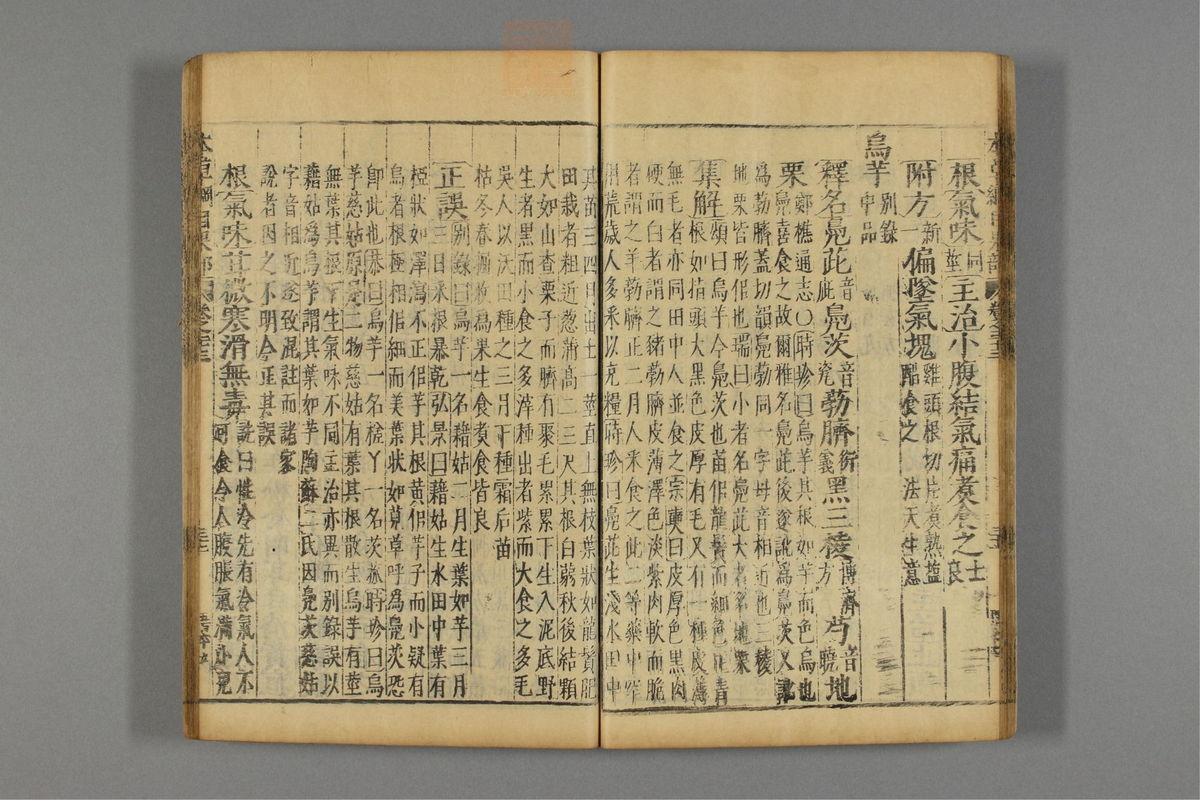 根氣味同莖主治小腹結氣痛煮食之士良
附方新一偏墜氣塊雞頭根切片煮熟鹽醋食之法天生意
烏芋別錄中品
釋名鳧茈音疵鳧茨音瓷葧臍衍義黑三稜博濟方芍音曉地
栗鄭樵通志○時珍曰烏芋其根如芋而色烏也
鳧喜食之故爾雅名鳧茈後遂訛為鳧茨又訛
為葧臍蓋切韻鳧葧同一字母音相近也三稜
地栗皆形佀也瑞曰小者名鳧茈大者名地栗
集解頌曰烏芋今鳧茨也苗佀龍鬚而細色正青
根如指頭大黑色皮厚有毛又有一種皮薄
無毛者亦同田中人並食之宗奭曰皮厚色黑肉
硬而白者謂之豬葧臍皮薄澤色淡紫肉軟而脆
者謂之羊葧臍正二月人采食之此二等藥中罕
用荒歲人多采以充糧時珍曰鳧茈生淺水田中
其苗三四月出土一莖直上無枝葉狀如龍鬚肥
田栽者粗近蔥蒲高二三尺其根白蒻秋後結顆
大如山查栗子而臍有聚毛累累下生入泥底野
生者黑而小食之多滓種出者紫而大食之多毛
吳人以沃田種之三月下種霜后苗
枯冬春掘收為果生食煮食皆良
正誤別錄曰烏芋一名藉姑二月生葉如芋三月
三日采根暴乾弘景曰藉姑生水田中葉有
椏狀如澤瀉不正佀芋其根黃佀芋子而小疑有
烏者根極相佀細而美葉狀如莧草呼為鳧茨恐
卽此也恭曰烏芋一名槎丫一名茨菰時珍曰烏
芋慈姑原是二物慈姑有葉其根散生烏芋有莖
無葉其根下生氣味不同主治亦異而別錄誤以
藉姑為烏芋謂其葉如芋陶蘇二氏因鳧茨慈姑
字音相近遂致混註而諸家
說者因之不明今正其誤
根氣味甘微寒滑無毒詵曰性冷先有冷氣人不可食令人腹脹氣滿小兒